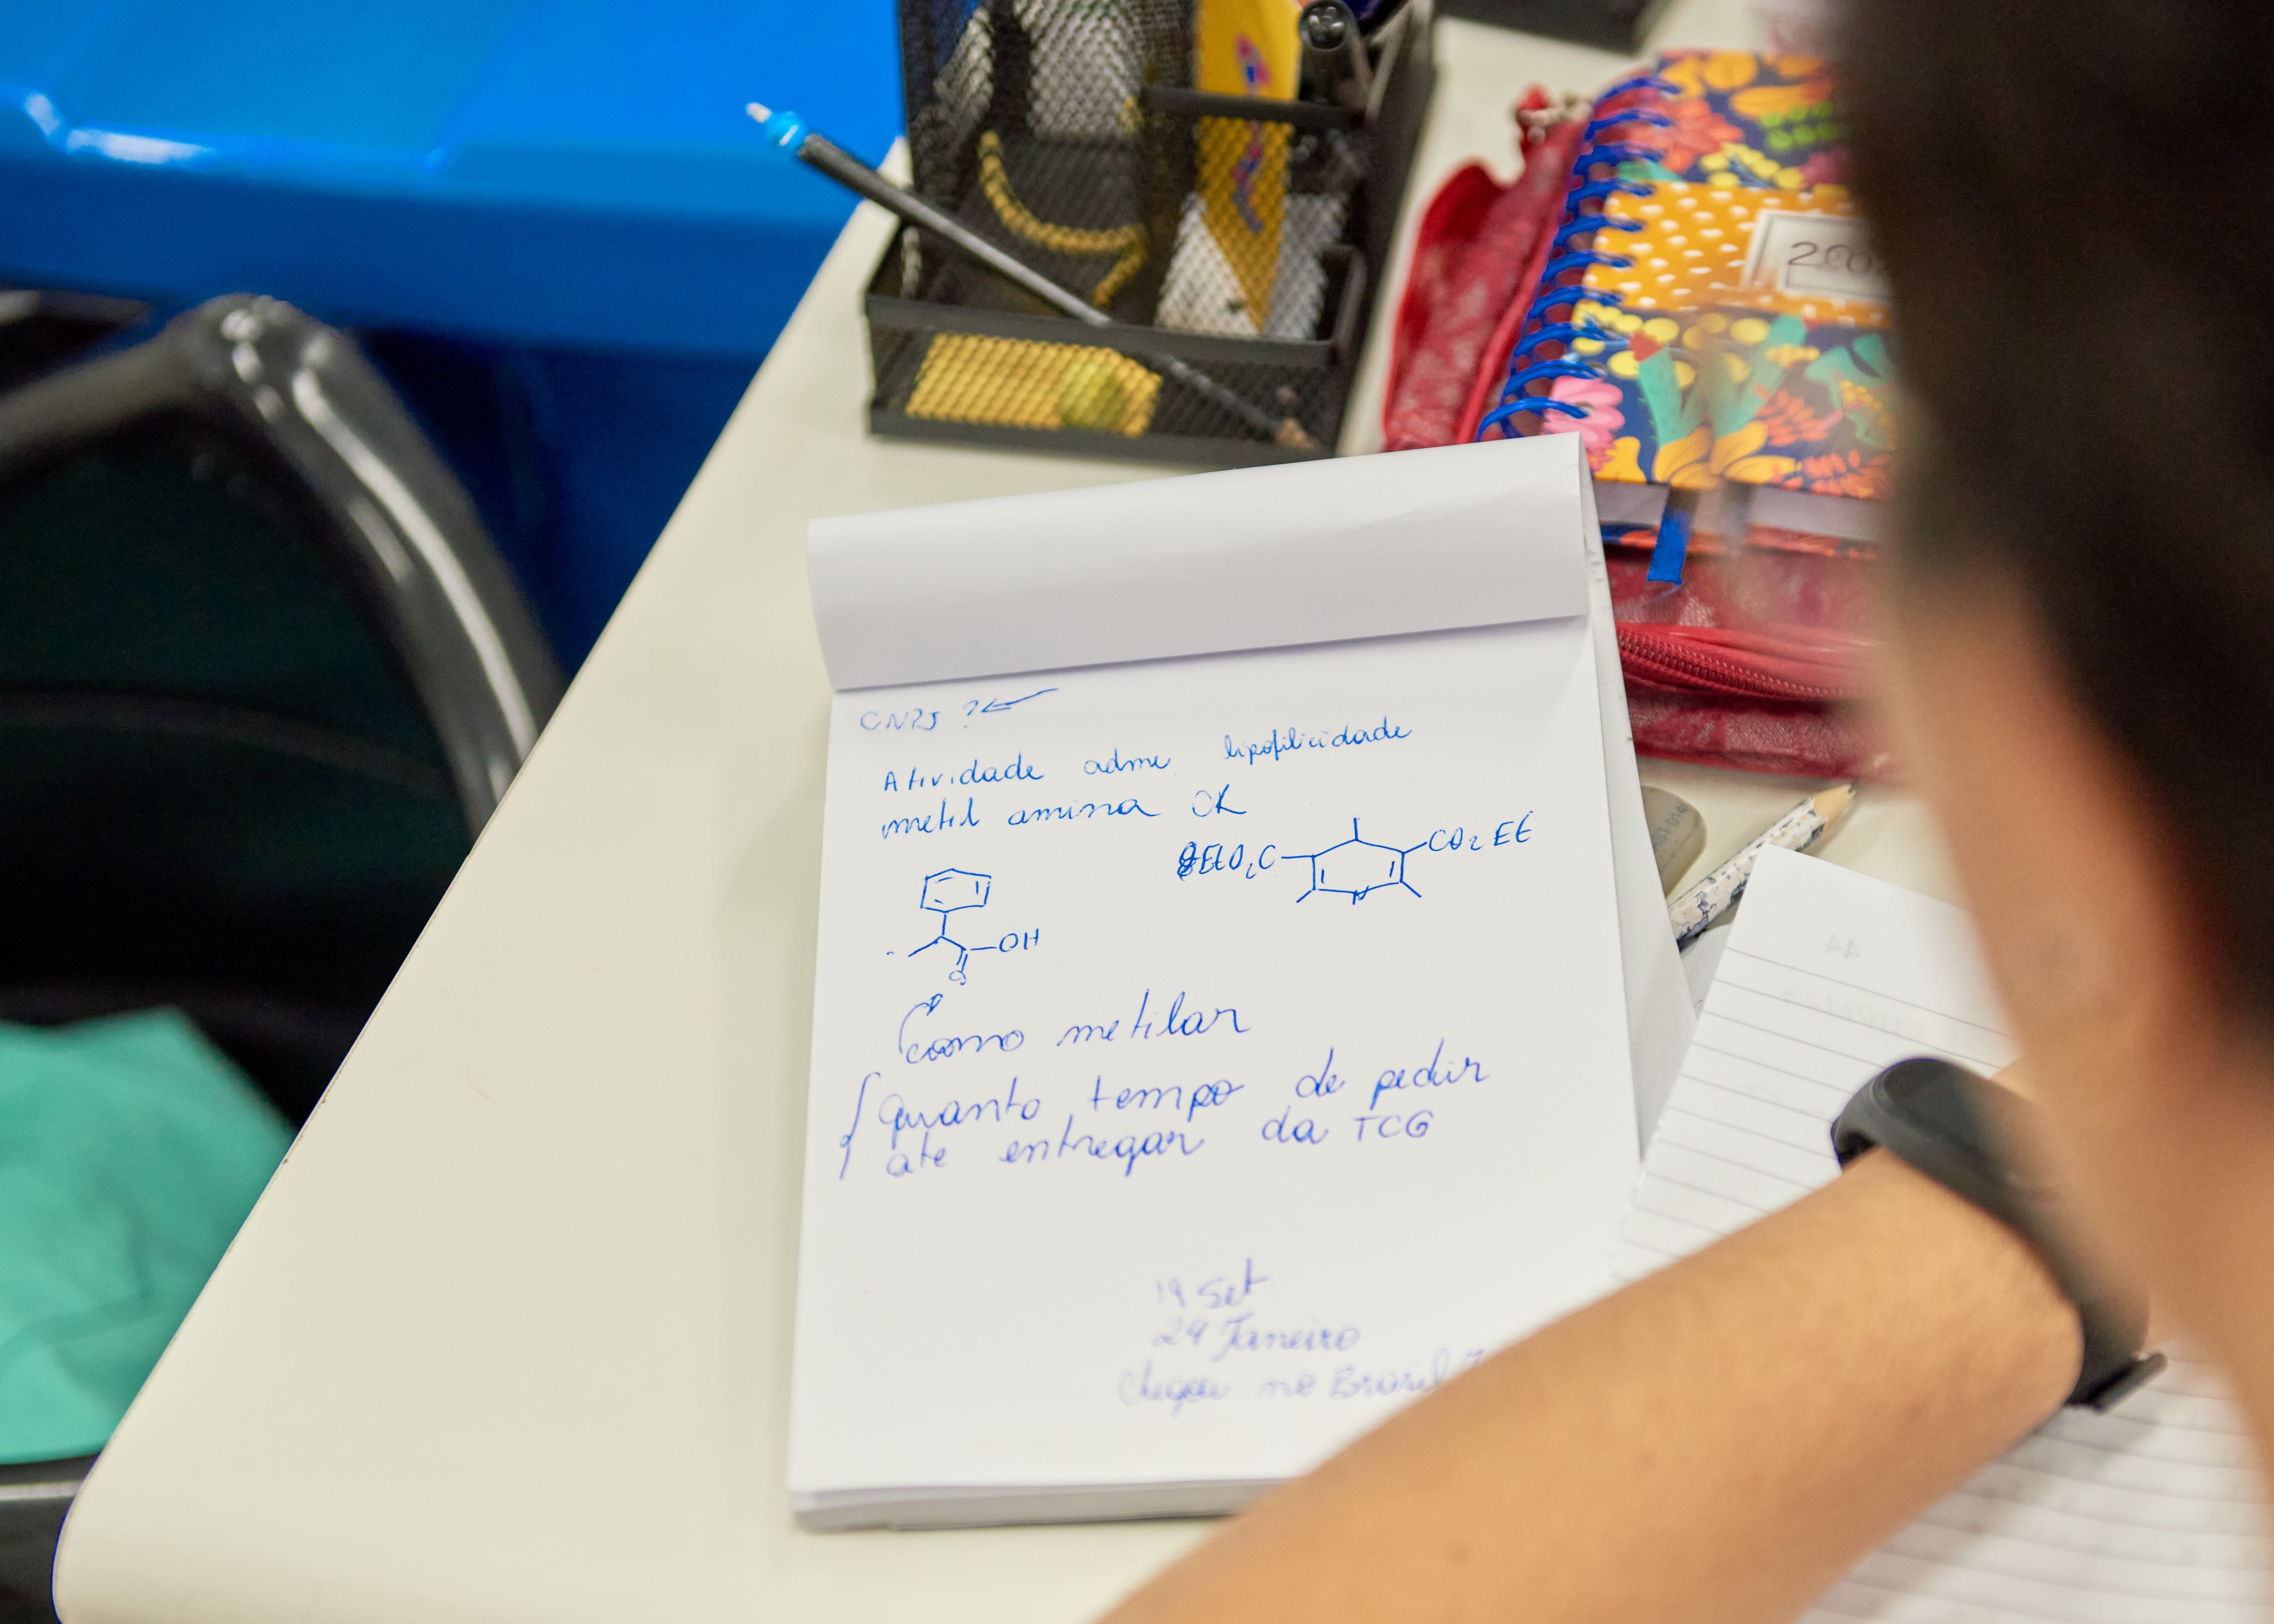 CNPJ ?
Atividade adme lipofilicidade
metil amina OK
EtO₂C CO₂Et
N
OH
O
como metilar
quanto tempo de pedir
ate entregar da TCG
19 Set
29 Janeiro
Chegou no Brasil
44